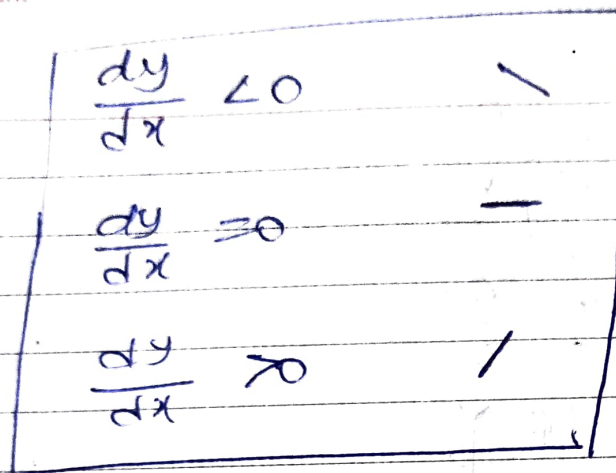 dy/dx <0 \
dy/dx =0 —
dy/dx >0 /